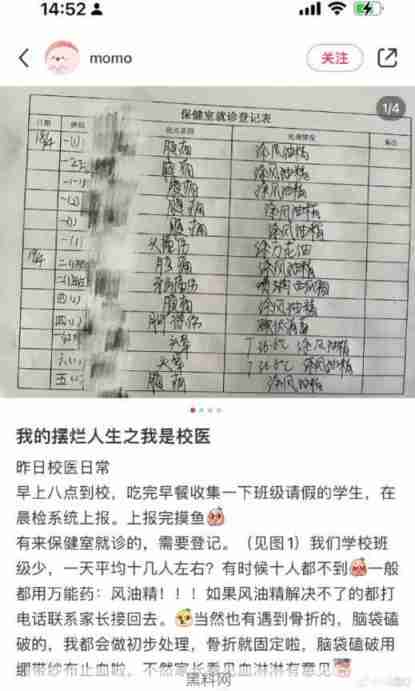 14:52
momo
关注
1/4
保健室就诊登记表
日期 班级 处理情况 备注
一(1) 腹痛 涂风油精
腹痛 涂风油精
腹痛 涂风油精
一(2) 腹痛 涂风油精
一(1) 腹痛 涂风油精
一(1) 涂万花油
腹痛 涂风油精
四(1) 腹痛 涂风油精
四(2)
头晕 T 36.5℃ 涂风油精
六(1) 头晕 涂风油精
五(1) 腹痛 涂风油精
我的摆烂人生之我是校医
昨日校医日常
早上八点到校，吃完早餐收集一下班级请假的学生，在
晨检系统上报。上报完摸鱼
有来保健室就诊的，需要登记。（见图1）我们学校班
级少，一天平均十几人左右？有时候十人都不到一般
都用万能药：风油精！！！如果风油精解决不了的都打
电话联系家长接回去。当然也有遇到骨折的，脑袋磕
破的，我都会做初步处理，骨折就固定啦，脑袋磕破用
绷带纱布止血啦，不然家长看见血淋淋有意见
黑料网